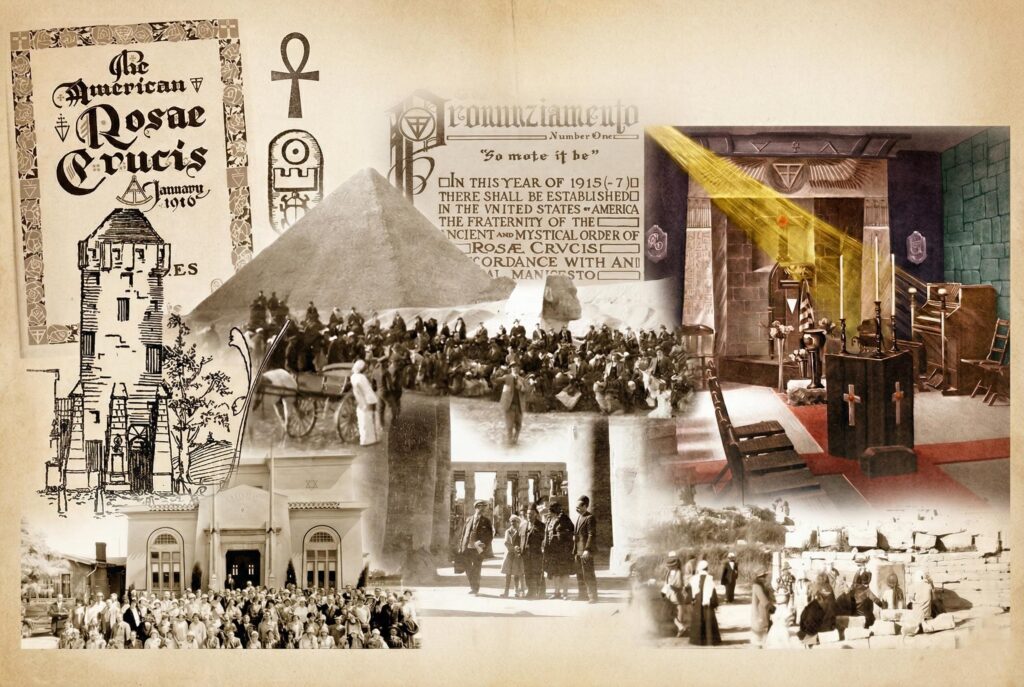 The
American
Rosae
Crucis
January
1916
ES
Pronunziamento
Number One
"So mote it be"
IN THIS YEAR OF 1915 (-7)
THERE SHALL BE ESTABLISHED
IN THE VNITED STATES OF AMERICA
THE FRATERNITY OF THE
ANCIENT AND MYSTICAL ORDER OF
ROSÆ CRVCIS
CCORDANCE WITH AN
AL MANIFESTO